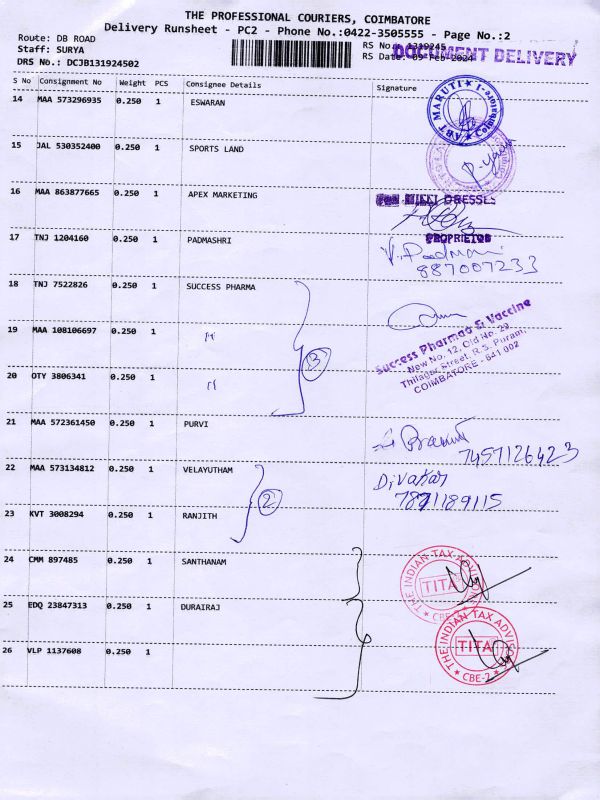 THE PROFESSIONAL COURIERS, COIMBATORE
Delivery Runsheet - PC2 - Phone No.:0422-3505555 - Page No.:2
Route: DB ROAD
RS No.: 1319245
DOCUMENT DELIVERY
Staff: SURYA
RS Date: 09-Feb-2024
DRS No.: DCJB131924502
S No Consignment No Weight PCS Consignee Details Signature
14 MAA 573296935 0.250 1 ESWARAN
ABT MARUTI
Coimbatore-1
15 JAL 530352400 0.250 1 SPORTS LAND
Coimbatore
16 MAA 863877665 0.250 1 APEX MARKETING
DRESSES
PROPRIETOR
17 TNJ 1204160 0.250 1 PADMASHRI
V. Padma
887007233
18 TNJ 7522826 0.250 1 SUCCESS PHARMA
19 MAA 108106697 0.250 1 "
3
Success Pharma & Vaccine
New No. 12, Old No. 29
Thilagar Street, R.S. Puram,
COIMBATORE - 641 002
20 OTY 3806341 0.250 1 "
21 MAA 572361450 0.250 1 PURVI
7457126423
22 MAA 573134812 0.250 1 VELAYUTHAM
Divakar
7871189115
2
23 KVT 3008294 0.250 1 RANJITH
24 CMM 897485 0.250 1 SANTHANAM
THE INDIAN TAX ADVI
TITA
CBE-2
25 EDQ 23847313 0.250 1 DURAIRAJ
THE INDIAN TAX ADVIS
TITA
CBE-2
26 VLP 1137608 0.250 1